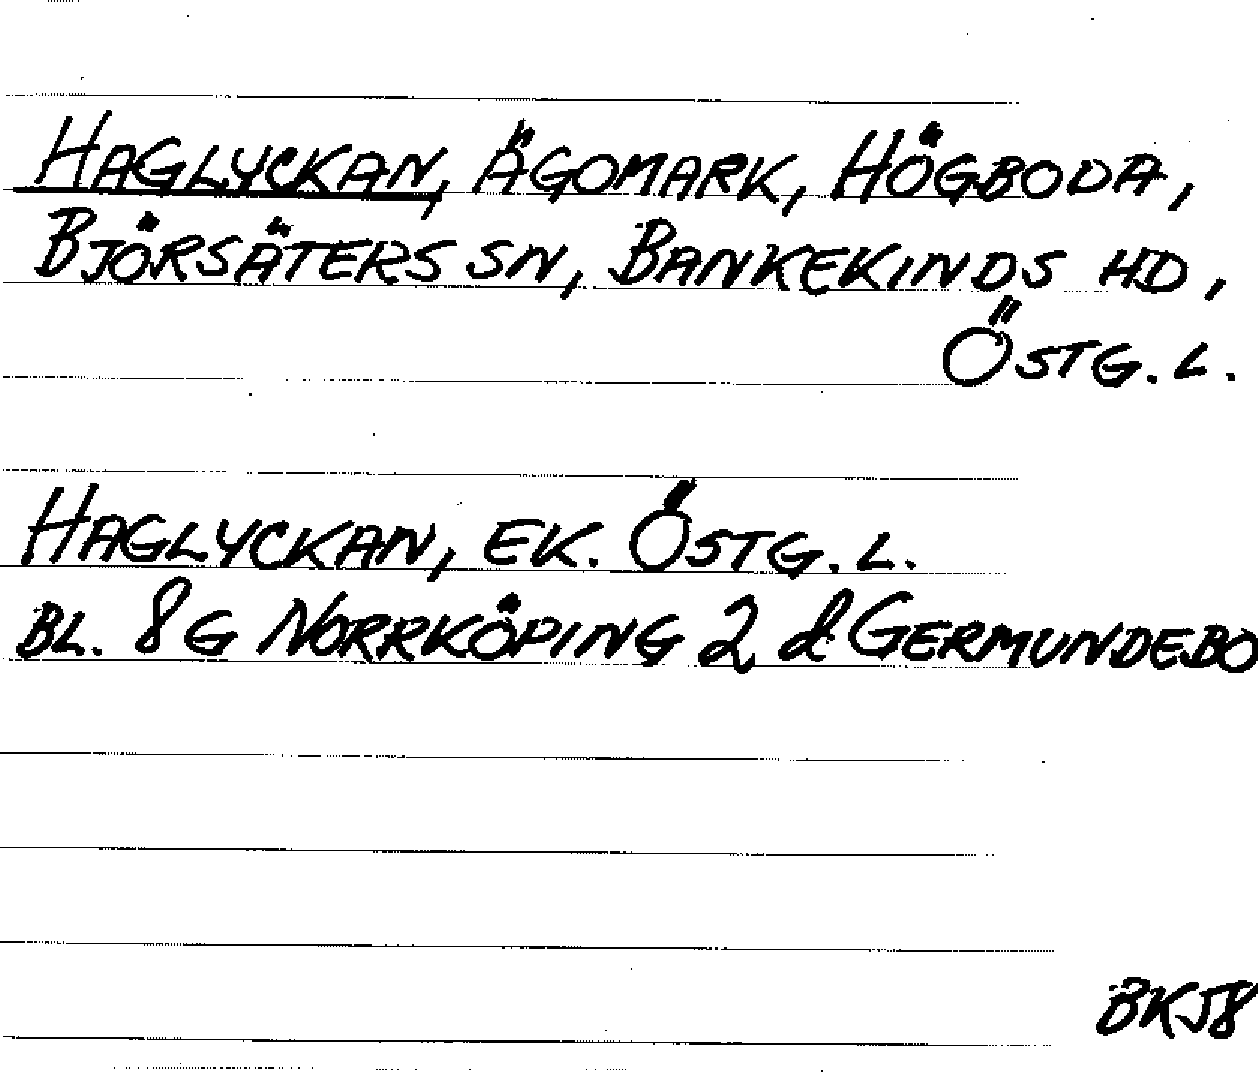 HAGLYCKAN, ÄGOMARK, HÖGBODA,
BJÖRSÄTERS SN, BANKEKINDS HD,
ÖSTG. L.
HAGLYCKAN, EK. ÖSTG. L.
BL. 8 G NORRKÖPING 2 d GERMUNDEBO
BKJ8